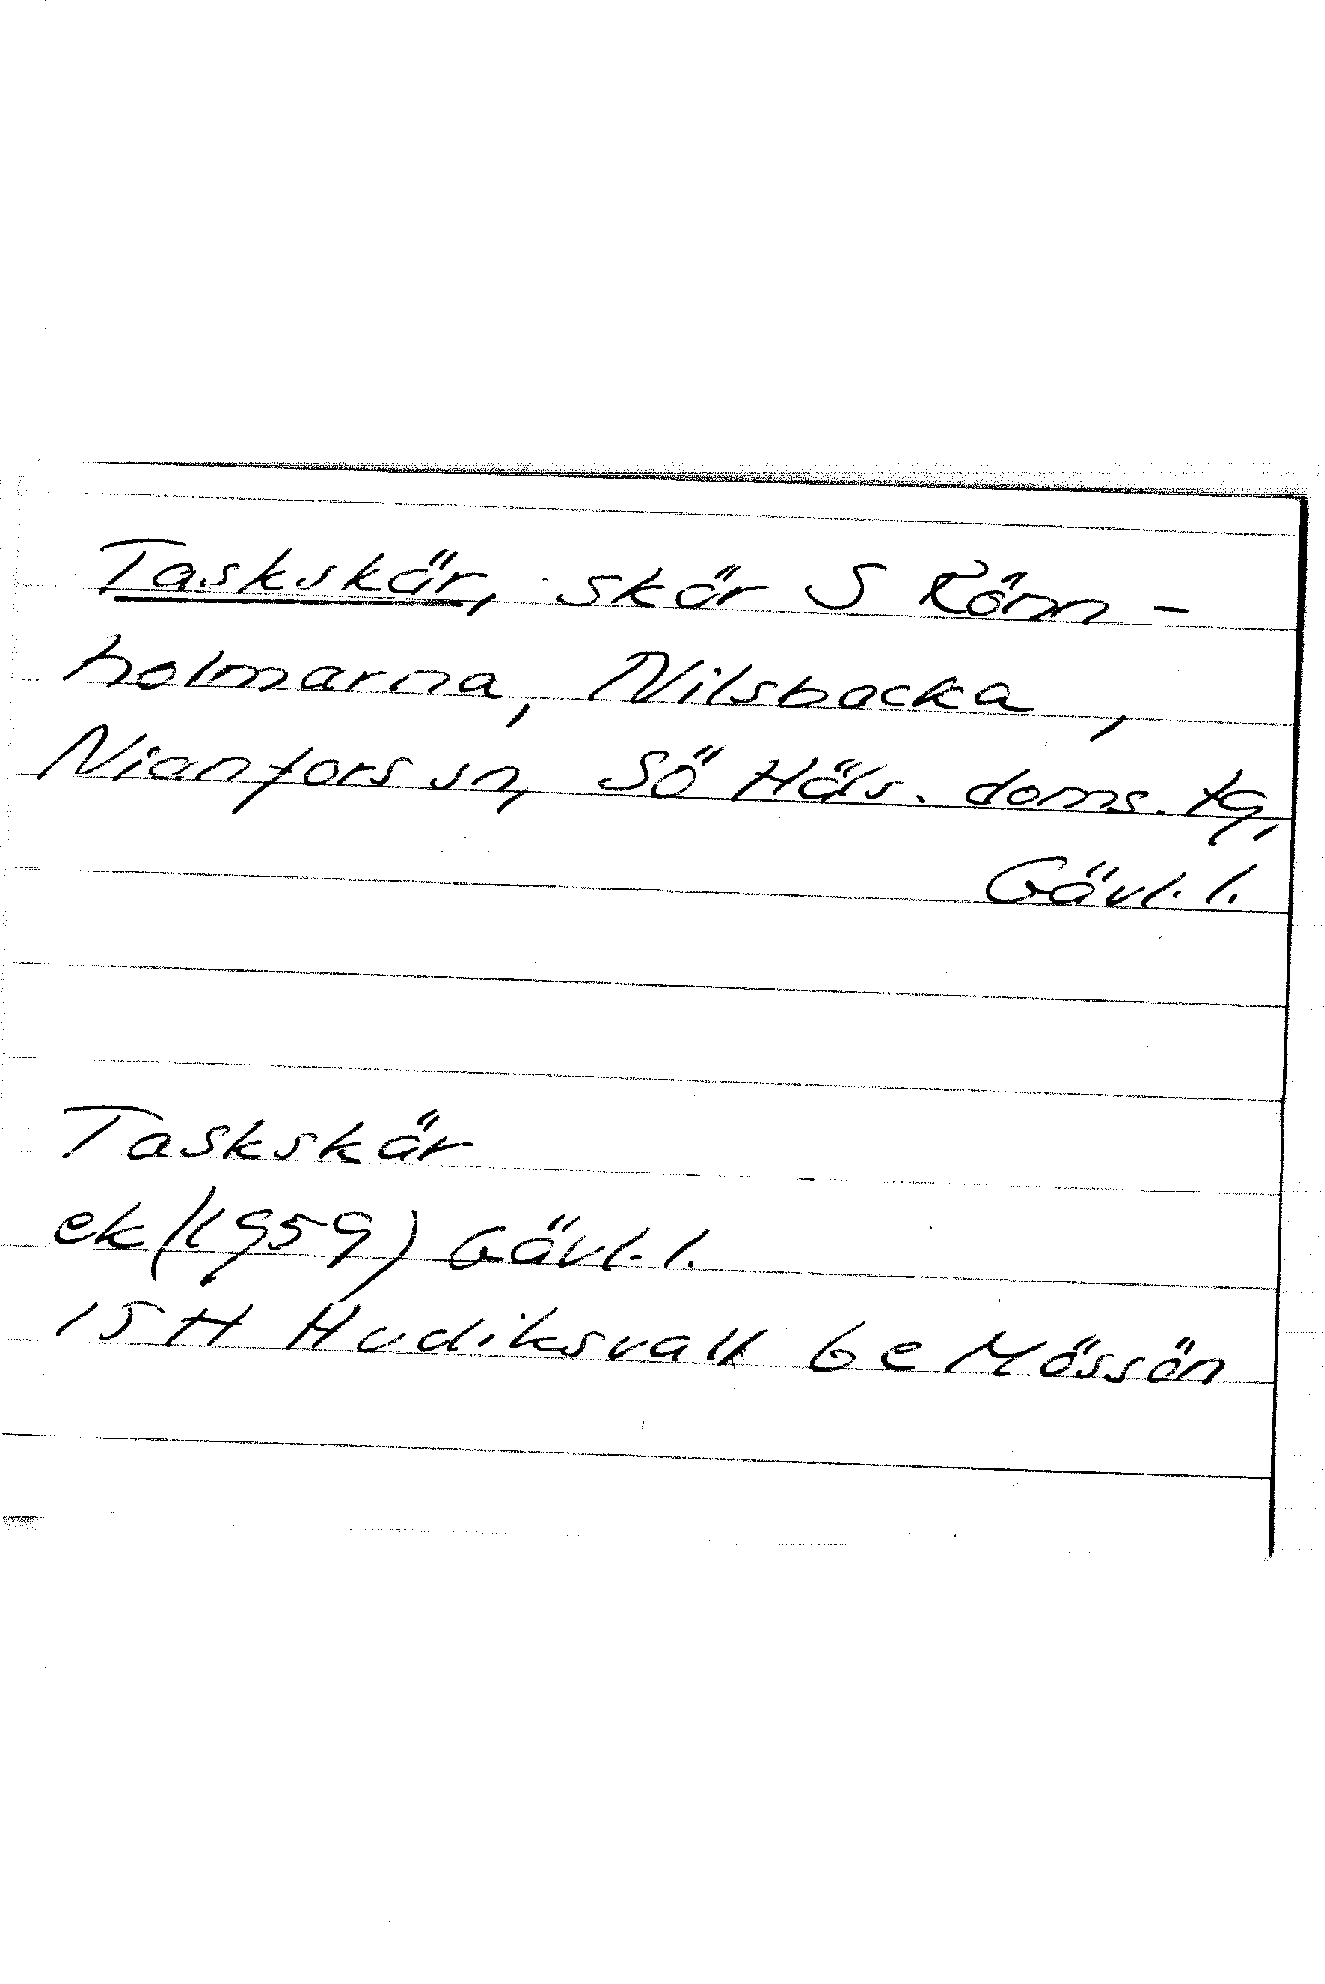 Taskskär, skär S Rönn-
holmarna, Nilsbacka,
Nianfors sn, Sö Häls. doms. tg,
Gävl. l.
Taskskär
ek (1959) Gävl. l.
15H Hudiksvall 6 e Mössön